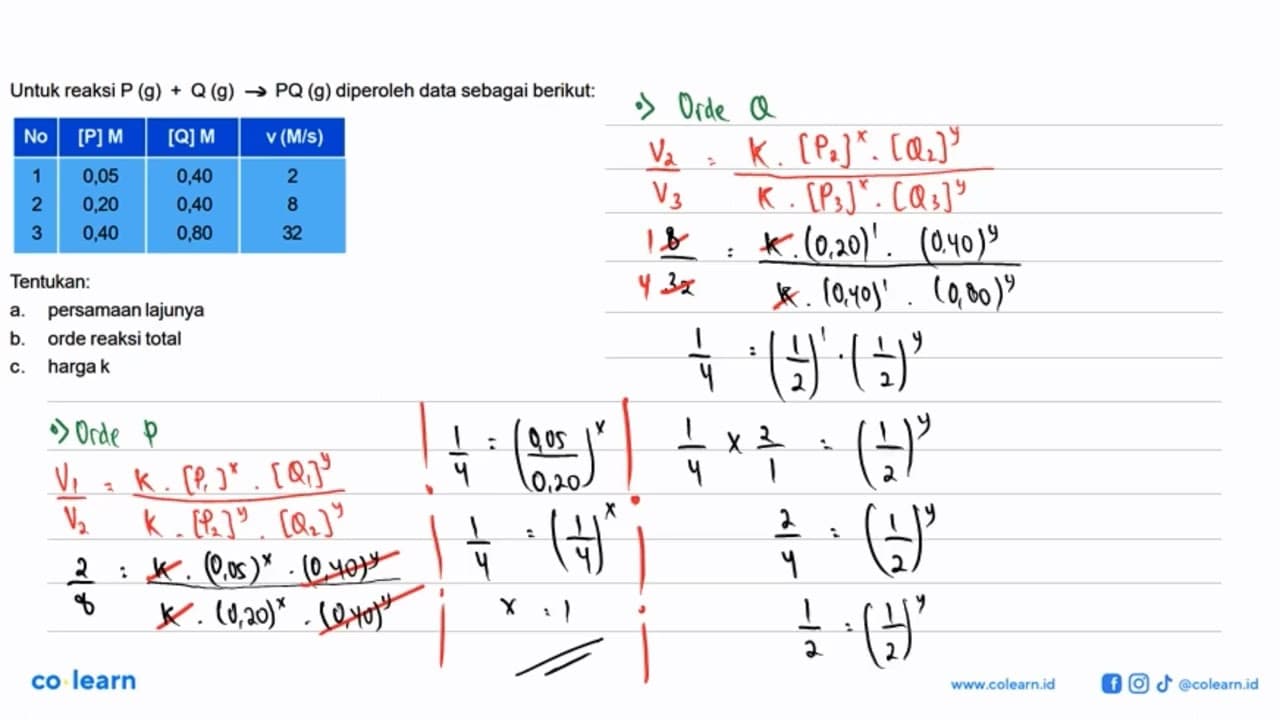 Untuk reaksi P (g) + Q (g) → PQ (g) diperoleh data sebagai berikut:
No [P] M [Q] M v (M/s)
1 0,05 0,40 2
2 0,20 0,40 8
3 0,40 0,80 32
Tentukan:
a. persamaan lajunya
b. orde reaksi total
c. harga k
•> Orde P
V₁/V₂ = K . [P₁]ˣ . [Q₁]ʸ / K . [P₂]ʸ . [Q₂]ʸ
2/8 = k . (0,05)ˣ . (0,40)ʸ / k . (0,20)ˣ . (0,40)ʸ
1/4 = (0,05/0,20)ˣ
1/4 = (1/4)ˣ
x = 1
•> Orde Q
V₂/V₃ = K . [P₂]ˣ . [Q₂]ʸ / K . [P₃]ˣ . [Q₃]ʸ
1 8 / 4 32 = k . (0,20)¹ . (0,40)ʸ / k . (0,40)¹ . (0,80)ʸ
1/4 = (1/2)¹ . (1/2)ʸ
1/4 x 2/1 = (1/2)ʸ
2/4 = (1/2)ʸ
1/2 = (1/2)ʸ
co·learn
www.colearn.id @colearn.id